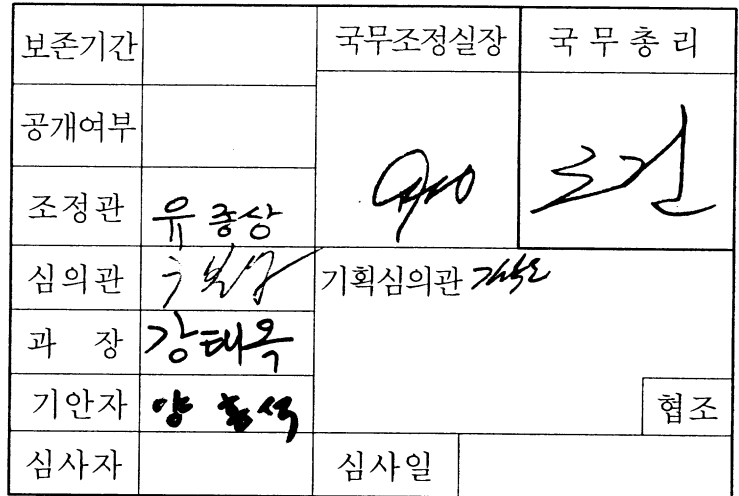 보존기간 국무조정실장 국무총리
공개여부
조정관 유종상
심의관 기획심의관
과 장 강태옥
기안자 양홍석
협조
심사자 심사일